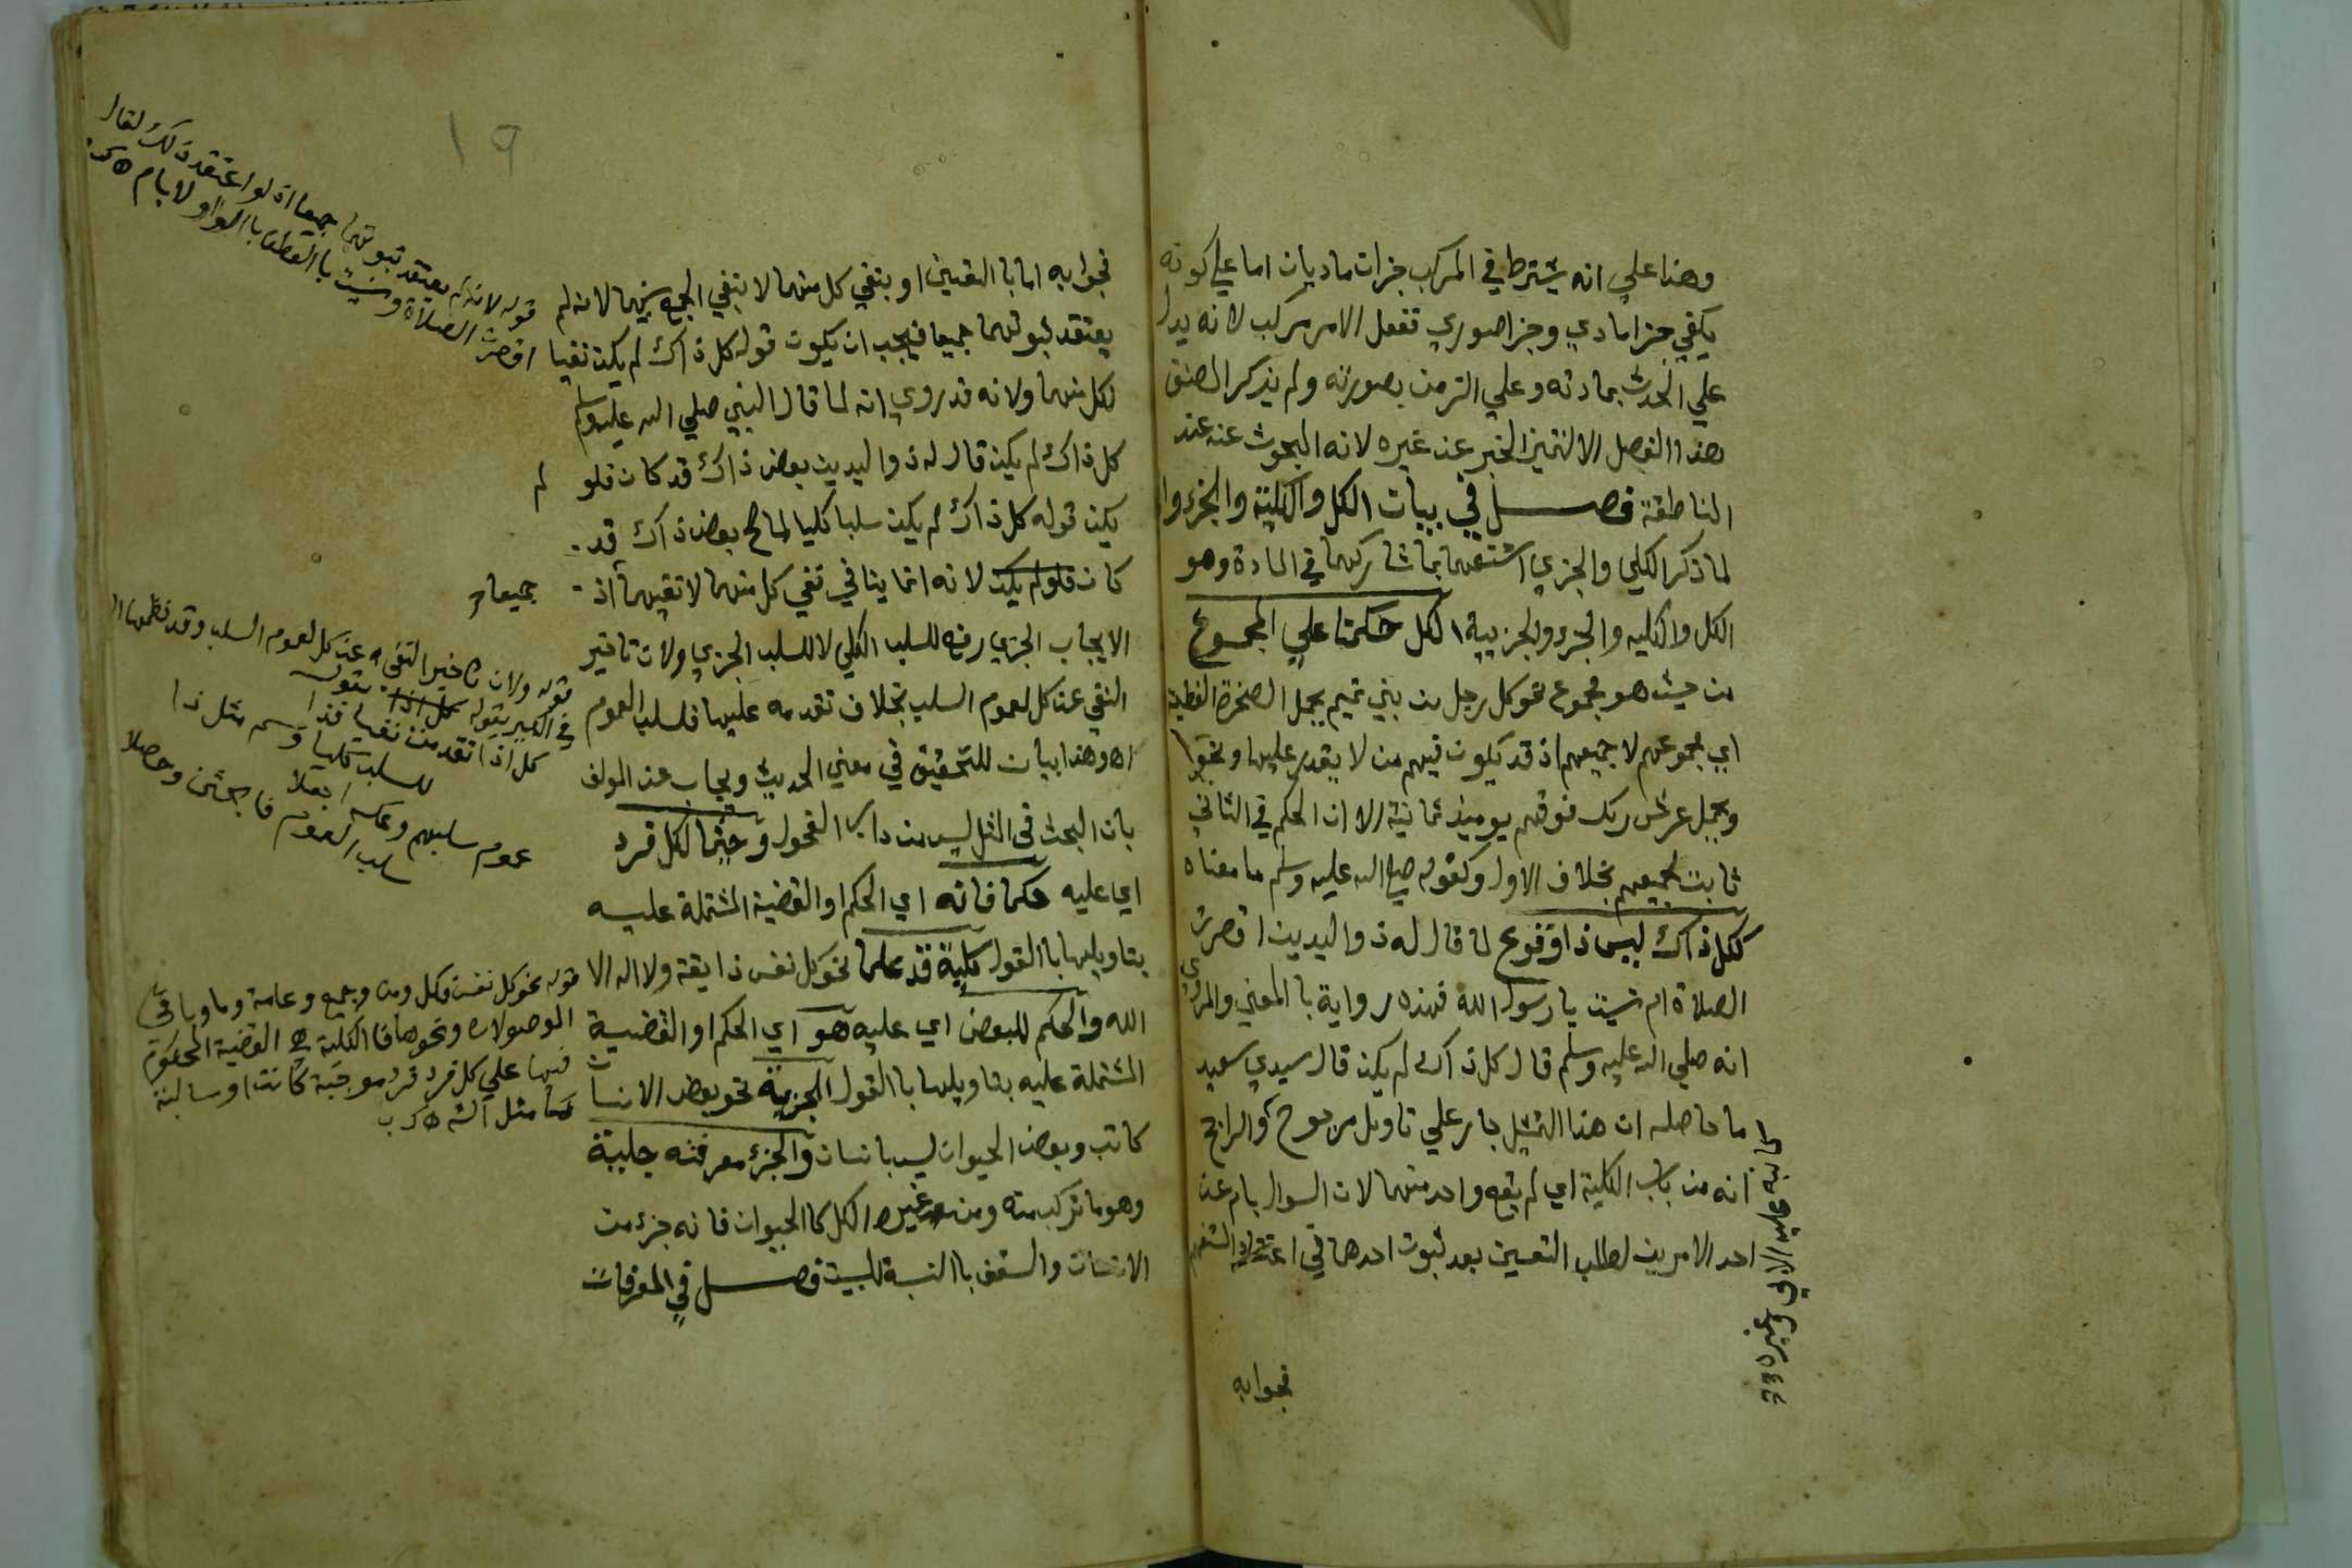 وهذا علي انه يشترط في المركب جزات ماديان اما علي كونه
يكفي جزا مادي وجزا صوري تفعل الامر مركب لانه يدل
علي الحدث بمادته وعلي الزمن بصورته ولم يذكر المصنف
هذا الفصل الا لتميز الخبر عن غيره لانه المبحوث عنه عند
المناطقة فصل في بيات الكل والكلية والجزء وا
لما ذكر الكلي والجزي اشتبهما بما شاركهما في المادة وهو
الكل والكليه والجزء والجزيية الكل حكمنا علي المجموع
من حيث هو مجموع نحو كل رجل من بني تميم يحمل الصخرة العظيمة
اي مجموعهم لا جميعهم اذ قد يكون فيهم من لا يقدر عليها ونحو
ويحمل عرش ربك فوقهم يوميذ ثمانية الا ان الحكم في الثاني
ثابت لجميعهم بخلاف الاول وكقوله صلي الله عليه وسلم ما معناه
ككل ذاك ليس ذا وقوع لما قال له ذو اليدين اقصرت
الصلاة ام نسيت يا رسول الله فهذه رواية با المعني والمروي
انه صلي الله عليه وسلم قال كل ذاك لم يكن قال سيدي سعيد
ما حاصله ان هذا التمثيل جار علي تاويل مرجوح والراجح
انه من باب الكلية اي لم يقع واحد منهما لان السوال بام عن
احد الامرين لطلب التعيين بعد ثبوت احدهما في اعتقاد المستفهم
كما نبه عليه الابي وغيره
فجوابه
١٩
فجوابه اما با التعيين او بنفي كل منهما لا بنفي الجمع بينهما لانه لم
يعتقد ثبوتهما جميعا فيجب ان يكون قوله كل ذاك لم يكن نفيا
لكل منهما ولانه قد روي انه لما قال النبي صلي الله عليه وسلم
كل ذاك لم يكن قال له ذو اليدين بعض ذاك قد كان فلو لم
يكن قوله كل ذاك لم يكن سلبا كليا لما صح بعض ذاك قد
كان فلو لم يكن لانه انما ينافي نفي كل منهما لا نفيهما اذ جميعا
الايجاب الجزي رفع للسلب الكلي لا للسلب الجزي ولان تاخير
النفي عن كل لعموم السلب بخلاف تقدمه عليها فلسلب العموم
اه وهذا بيان للتحقيق في معني الحديث ويجاب عن المولف
بان البحث في المثل ليس من داب الفحول وحيثما لكل فرد
اي عليه حكما فانه اي الحكم او القضية المشتملة عليه
بتاويلها با القول كلية قد علما نحو كل نفس ذايقة ولا اله الا
الله والحكم للبعض اي عليه هو اي الحكم او القضية
المشتملة عليه بتاويلها با القول الجزيية نحو بعض الانسان
كاتب وبعض الحيوان ليس بانسان والجزء معرفته جلية
وهو ما تركب منه ومن غيره الكل كا الحيوان فانه جزء من
الانسان والسقف با النسبة للبيت فصل في المعرفات
قوله لانه لم يعتقد ثبوتهما جميعا اذ لو اعتقد ذلك لقال
اقصرت الصلاة ونسيت با العطف با الواو لا بام
قوله ولان تاخير النفي عن كل لعموم السلب وقد نظمها
في الكبير بقوله
كل اذا تقدمت نفيا فذا
للسلب كليا وسم مثل ذا
عموم سلبهم وعكسه اجعلا
سلب العموم فابحثن وحصلا
قوله نحو كل نفس وكل ومن وجميع وعامة وما وباقي
الموصولات ونحوها فا الكلية هي القضية المحكوم
فيها علي كل فرد فرد موجبة كانت او سالبة
كما مثل الش